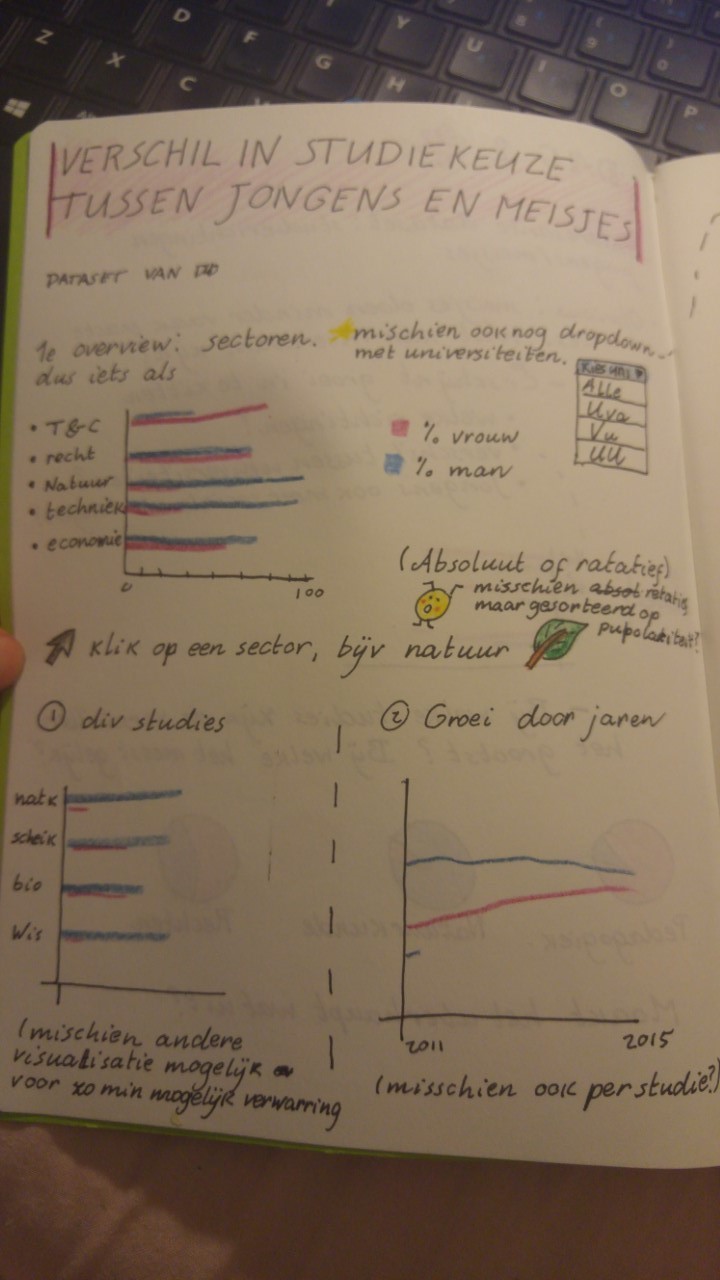 VERSCHIL IN STUDIEKEUZE
TUSSEN JONGENS EN MEISJES
DATASET VAN DD
1e overview: sectoren.
dus iets als
mischien ook nog dropdown
met universiteiten.
Kies uni
Alle
Uva
Vu
UU
• T&C
• recht
• Natuur
• techniek
• economie
0
100
% vrouw
% man
(Absoluut of ratatief)
misschien absol retatief
maar gesorteerd op
pupolariteit?
Klik op een sector, bijv natuur
1 div studies
natk
scheik
bio
Wis
(mischien andere
visualisatie mogelijk
voor zo min mogelijk verwarring
2 Groei door jaren
2011
2015
(misschien ook per studie?)
Z
X
C
D
F
G
H
Y
U
I
O
P
8
9
0